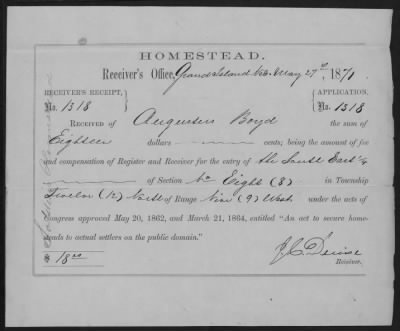 HOMESTEAD.
Receiver's Office, Grand Island Neb. May 27th, 1871
RECEIVER'S RECEIPT, APPLICATION,
No. 1318 No. 1318
RECEIVED OF Augustus Boyd the sum of
Eighteen dollars cents; being the amount of fee
and compensation of Register and Receiver for the entry of the South East 1/4
of Section No Eight (8) in Township
Twelve (12) North of Range Nine (9) West under the acts of
Congress approved May 20, 1862, and March 21, 1864, entitled "An act to secure home-
steads to actual settlers on the public domain."
$ 18.00
Receiver.